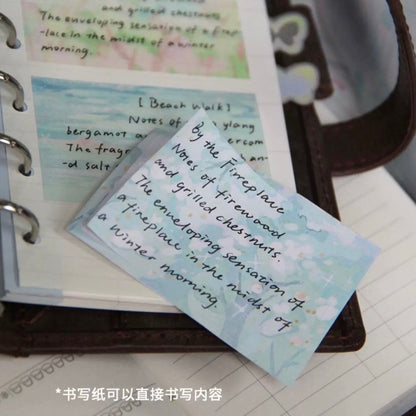 and grilled chestnuts.
The enveloping sensation of a firep
-lace in the midst of a winter
morning.
[Beach Walk]
Notes of ylang
bergamot an
The frag
-d salt
By the Fireplace
Notes of firewood
and grilled chestnuts.
The enveloping sensation of
a fireplace in the midst of
a winter morning.
*书写纸可以直接书写内容